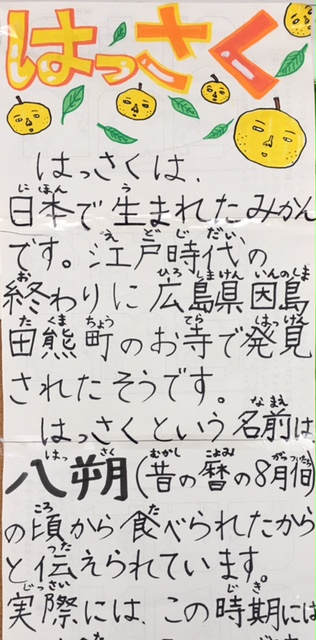 はっさく
はっさくは、
日本で生まれたみかん
です。江戸時代の
終わりに広島県因島
田熊町のお寺で発見
されたそうです。
はっさくという名前は
八朔(昔の暦の8月1日)
の頃から食べられたから
と伝えられています。
実際には、この時期には